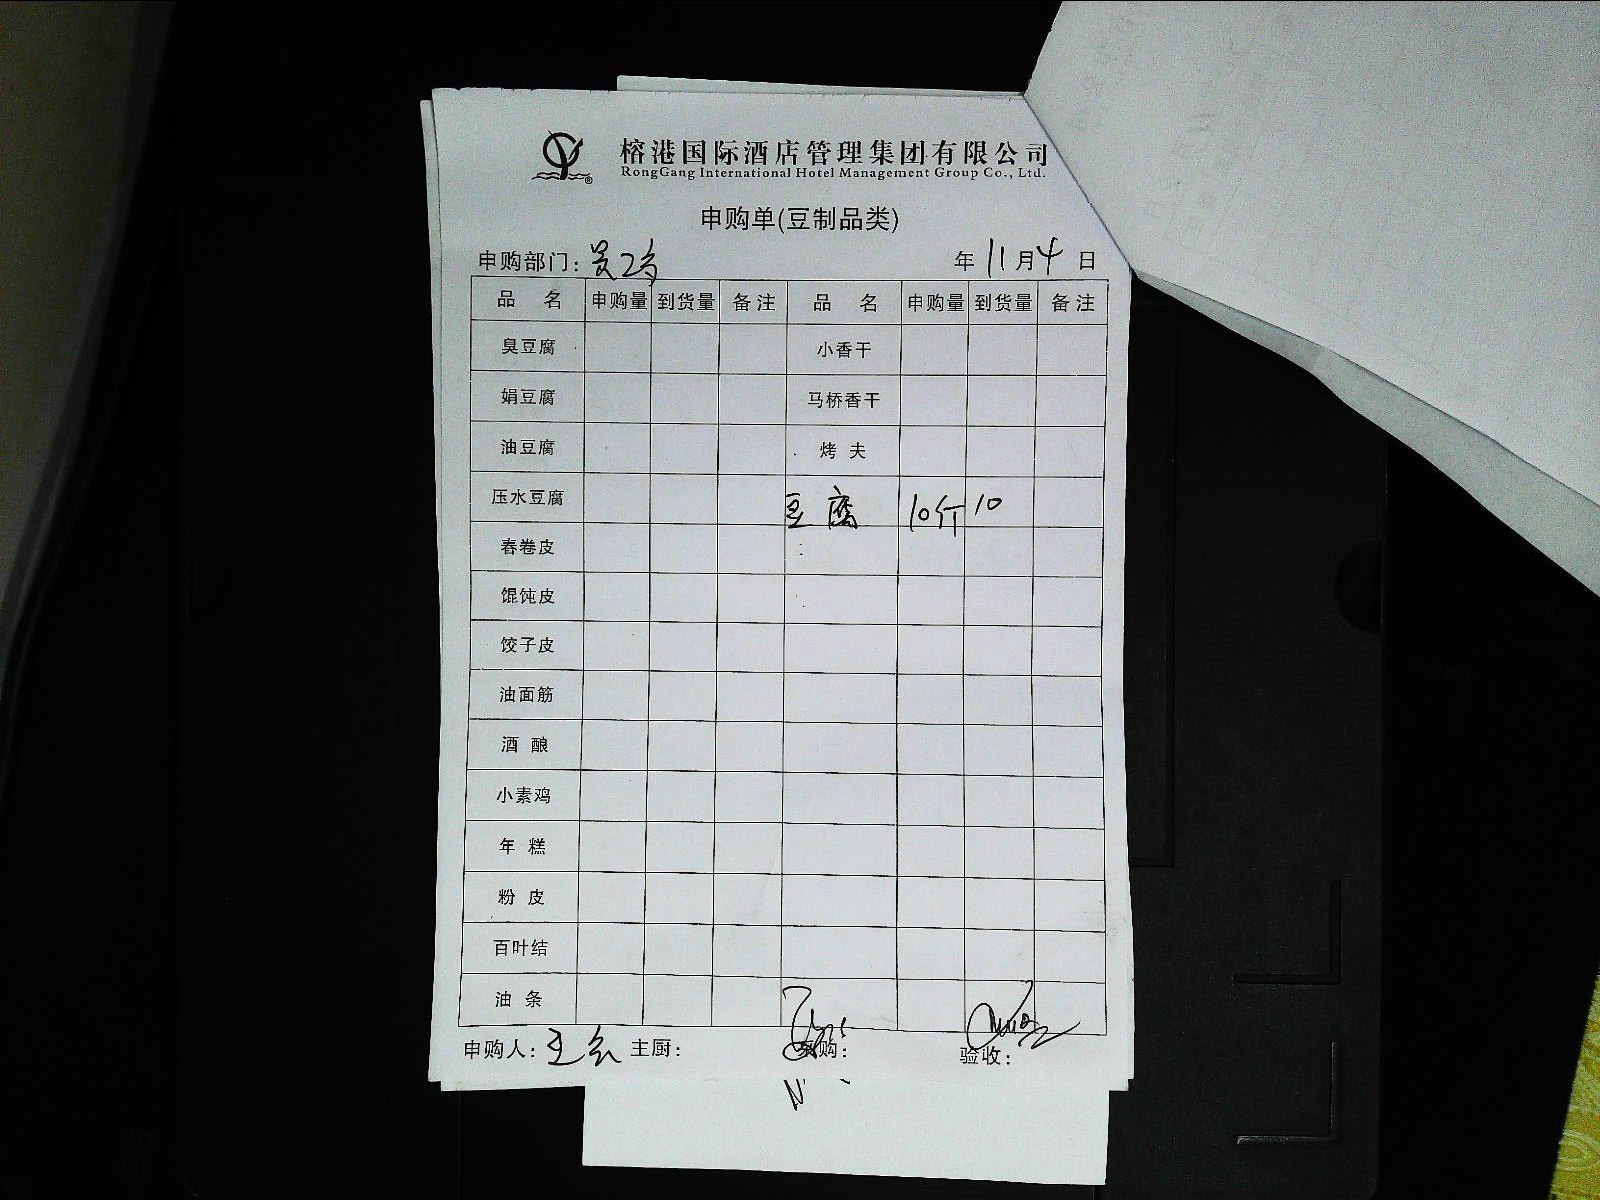 榕港国际酒店管理集团有限公司
RongGang International Hotel Management Group Co., Ltd.
申购单(豆制品类)
申购部门: 年 11 月 4 日
品 名 申购量 到货量 备注 品 名 申购量 到货量 备注
臭豆腐 小香干
娟豆腐 马桥香干
油豆腐 烤 夫
压水豆腐 豆腐 10斤 10
春卷皮
馄饨皮
饺子皮
油面筋
酒 酿
小素鸡
年 糕
粉 皮
百叶结
油 条
申购人: 主厨: 采购: 验收: